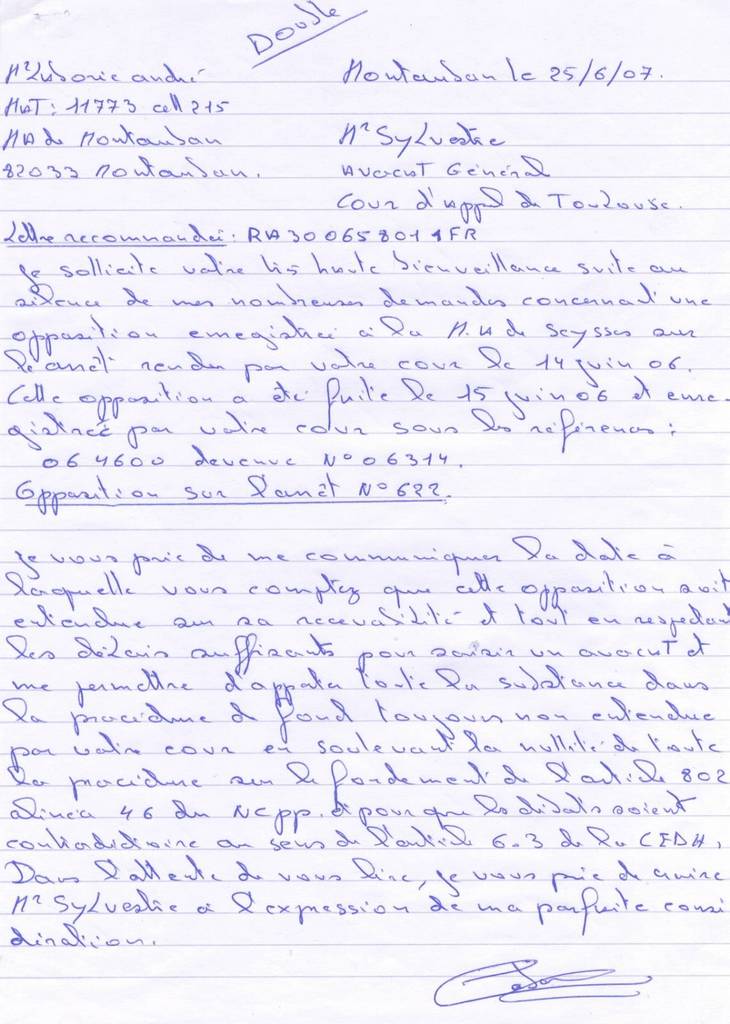 Double
Mr Laborie andré
Montauban le 25/6/07.
MAT: 11773 cell 215
MA de Montauban
Mr SyLvestre
82033 Montauban.
Avocat Général
Cour d'Appel de Toulouse.
Lettre recommandée: RA 30065801 1 FR
Je sollicite votre très haute bienveillance suite au
silence de mes nombreuses demandes concernant une
opposition enregistrée à la M.A de Seysses sur
le arrêt rendu par votre cour le 14 juin 06.
Cette opposition a été faite le 15 juin 06 et enre-
gistrée par votre cour sous les références:
06 4600 devenue N° 06314.
Opposition sur l'arrêt N° 622.
Je vous prie de me communiquer la date à
laquelle vous comptez que cette opposition soit
entendue sur sa recevabilité et tout en respectant
les délais suffisants pour saisir un avocat et
me permettre d'apporter toute la substance dans
la procédure de fond toujours non entendue
par votre cour en soulevant la nullité de toute
la procédure sur le fondement de l'article 802
alinéa 46 du NCPP. et pour que les débats soient
contradictoire au sens de l'article 6-3 de la CEDH,
Dans l'attente de vous lire, je vous prie de croire
Mr SyLvestre à l'expression de ma parfaite consi
dération.